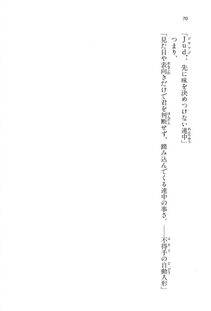 70
「Jud.、先に味を決めつけない連中」
つまり、
「見た目や表向きだけで君を判断せず、踏み込んでくる連中の事さ。――不得手の自動人形